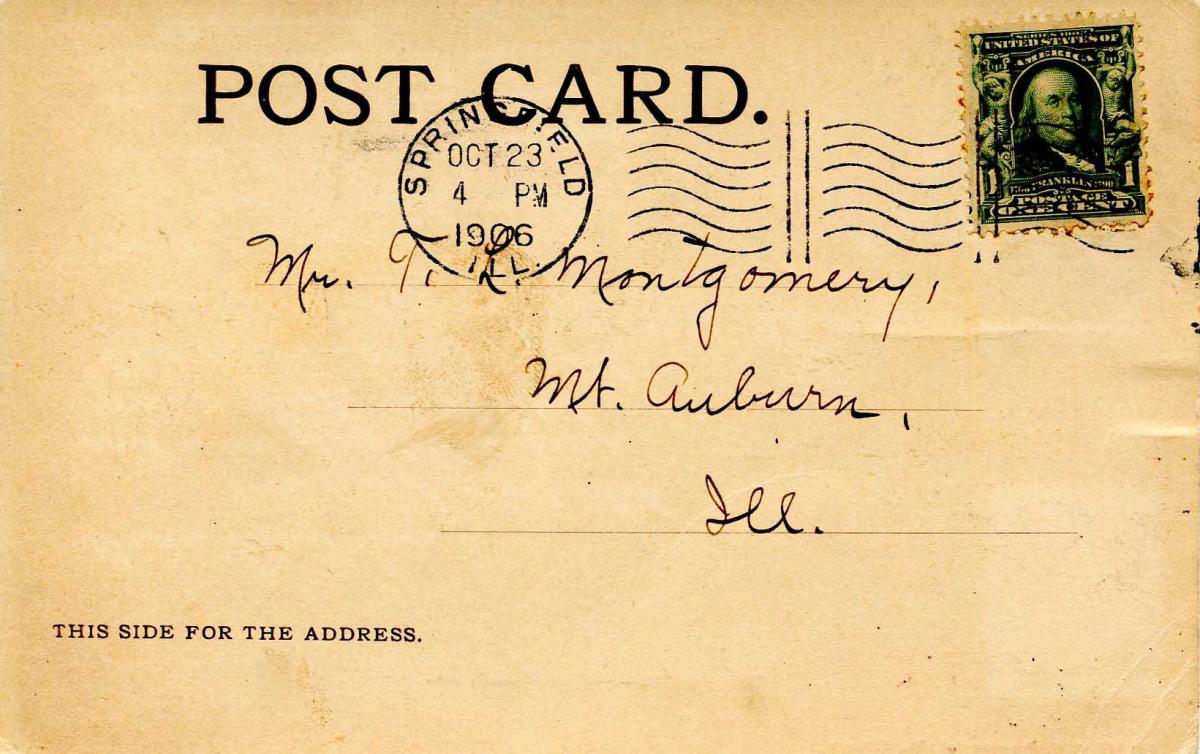 POST CARD.
SERIES 1902
UNITED STATES OF
AMERICA
1 FRANKLIN 1
POSTAGE
ONE CENT
SPRINGFIELD
OCT 23
4 PM
1906
ILL.
Mr. T. L. Montgomery,
Mt. Auburn,
Ill.
THIS SIDE FOR THE ADDRESS.